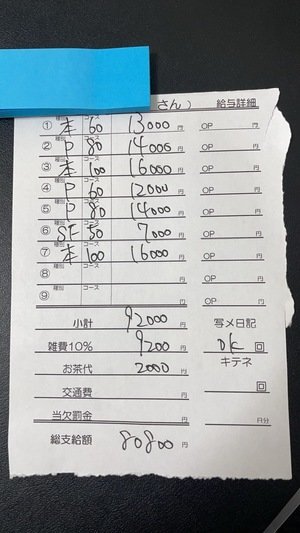 さん） 給与詳細
① 種別 本 コース 60 13000円 OP 円
② 種別 P コース 80 14000円 OP 円
③ 種別 本 コース 100 16000円 OP 円
④ 種別 P コース 60 12000円 OP 円
⑤ 種別 P コース 80 14000円 OP 円
⑥ 種別 SF コース 50 7000円 OP 円
⑦ 種別 本 コース 100 16000円 OP 円
⑧ 種別 コース 円 OP 円
⑨ 種別 コース 円 OP 円
小計 92000円 写メ日記
雑費10% 9200円 ok 回
お茶代 2000円 キテネ
交通費 円 回
当欠罰金 円 円分
総支給額 80800円